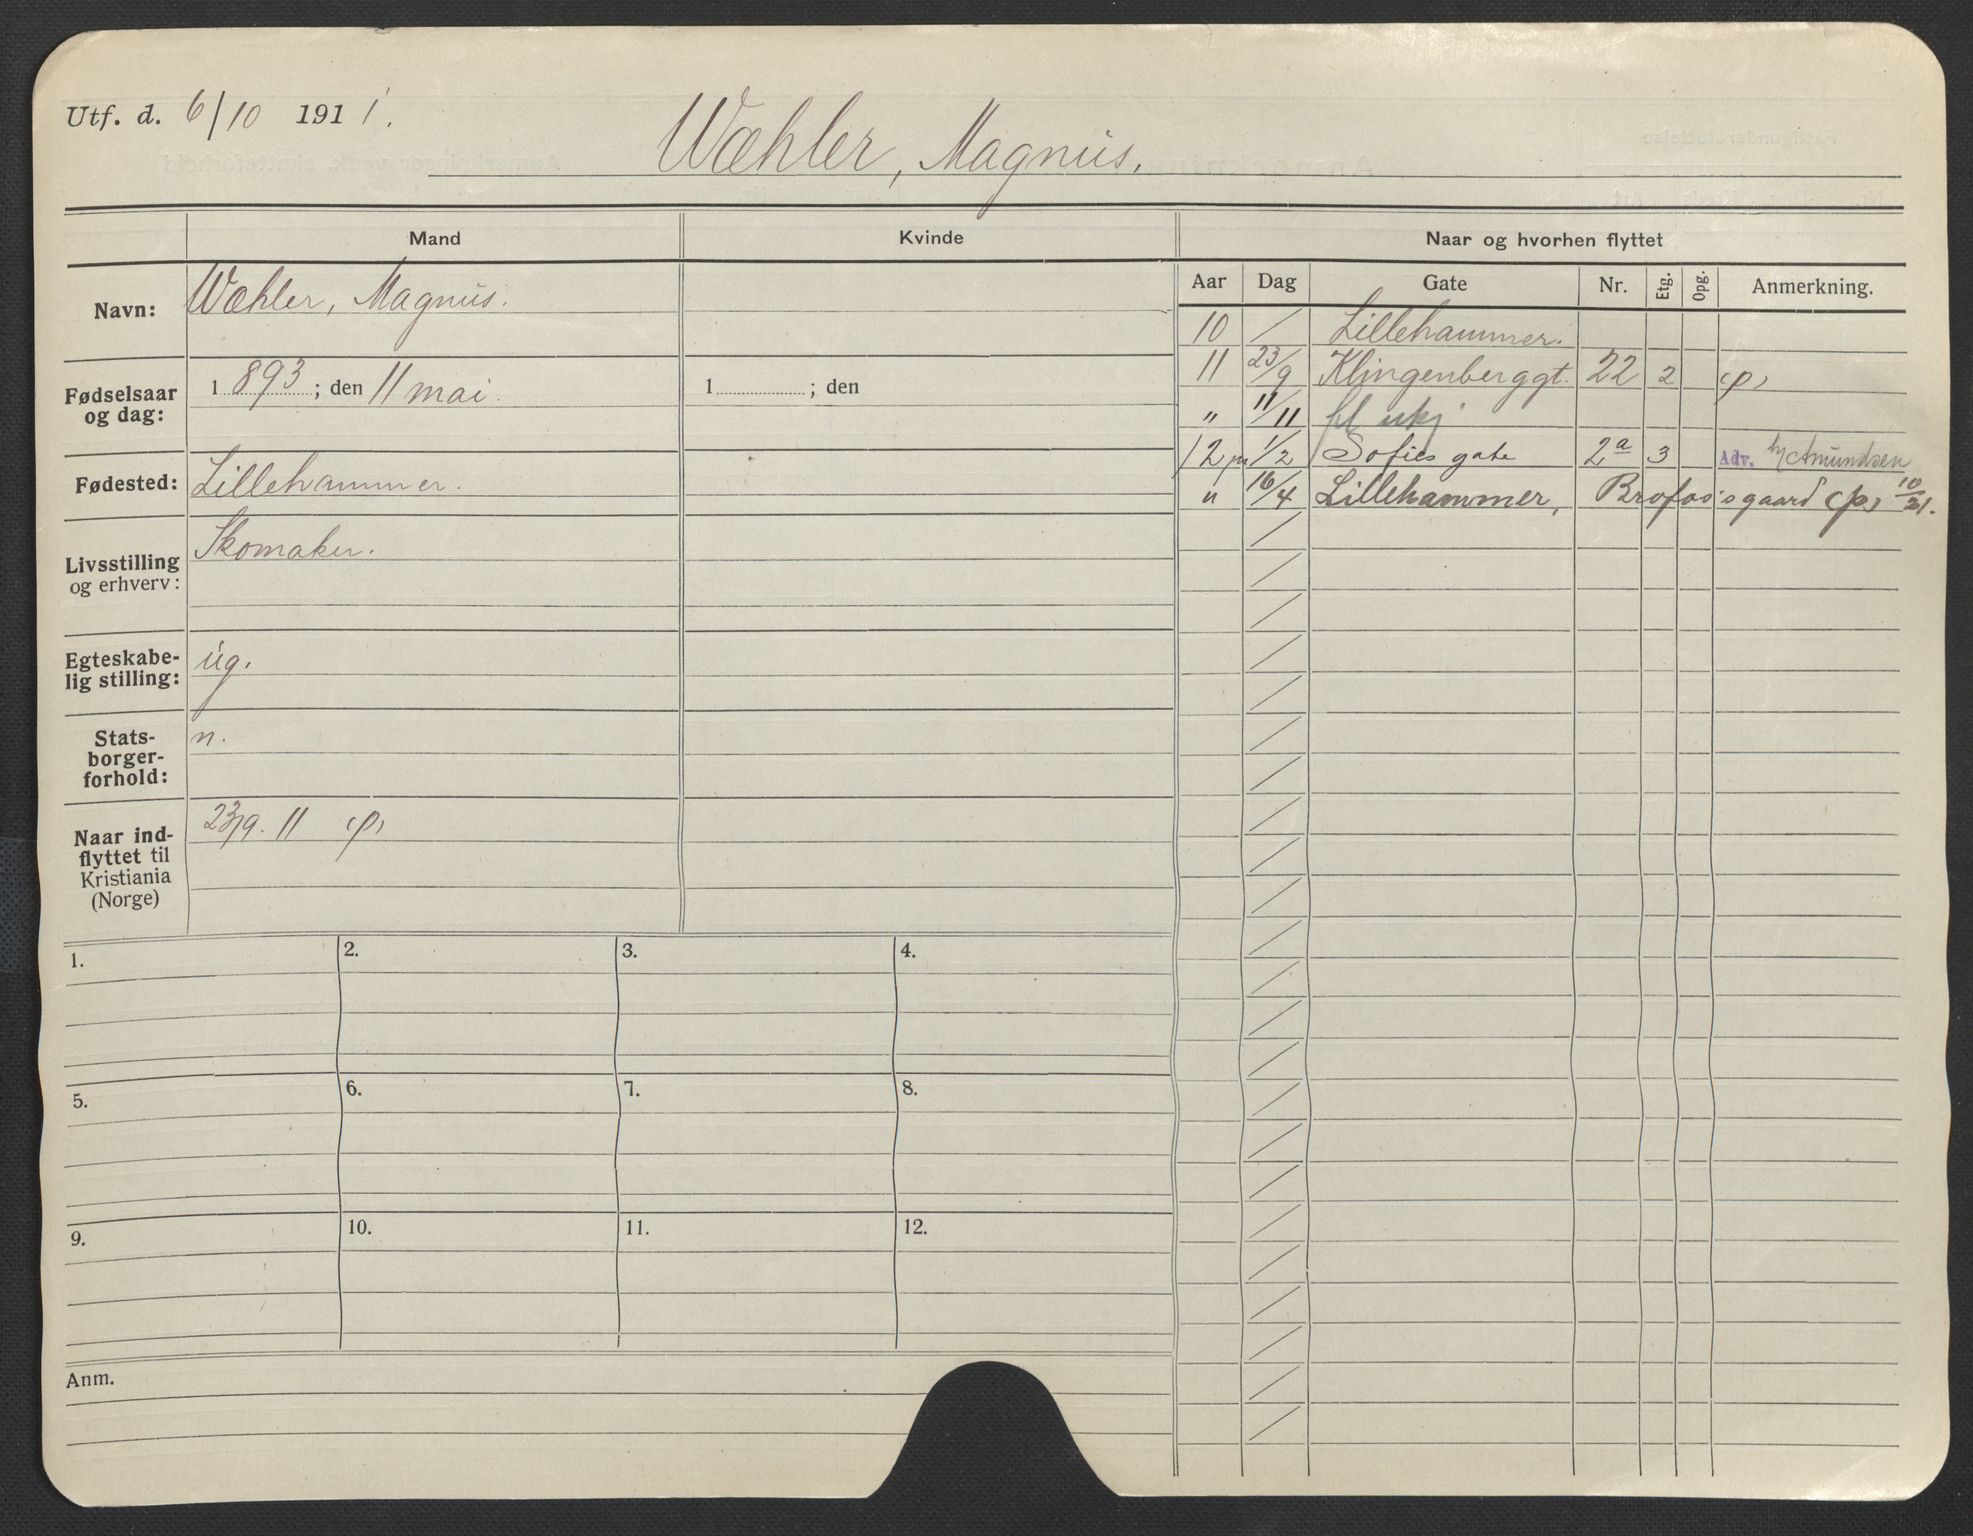 Utf. d. 6/10 1911.
Wæhler, Magnus.
Mand
Kvinde
Naar og hvorhen flyttet
Navn: Wæhler, Magnus.
Fødselsaar og dag: 1893; den 11 mai. 1 ; den
Fødested: Lillehammer.
Livsstilling og erhverv: Skomaker.
Egteskabe-
lig stilling: ug.
Stats-
borger-
forhold: n.
Naar ind-
flyttet til
Kristiania
(Norge) 23/9. 11 (p)
1. 2. 3. 4.
5. 6. 7. 8.
9. 10. 11. 12.
Anm.
Aar Dag Gate Nr. Etg. Opg. Anmerkning.
10 / Lillehammer.
11 23/9 Klingenberggt. 22 2 (p)
" 11/11 fl ukj
12 1/2 Sofies gate 2a 3 Adv. h/Amundsen
" 16/4 Lillehammer, Brofos's gaard (p) 10/21.